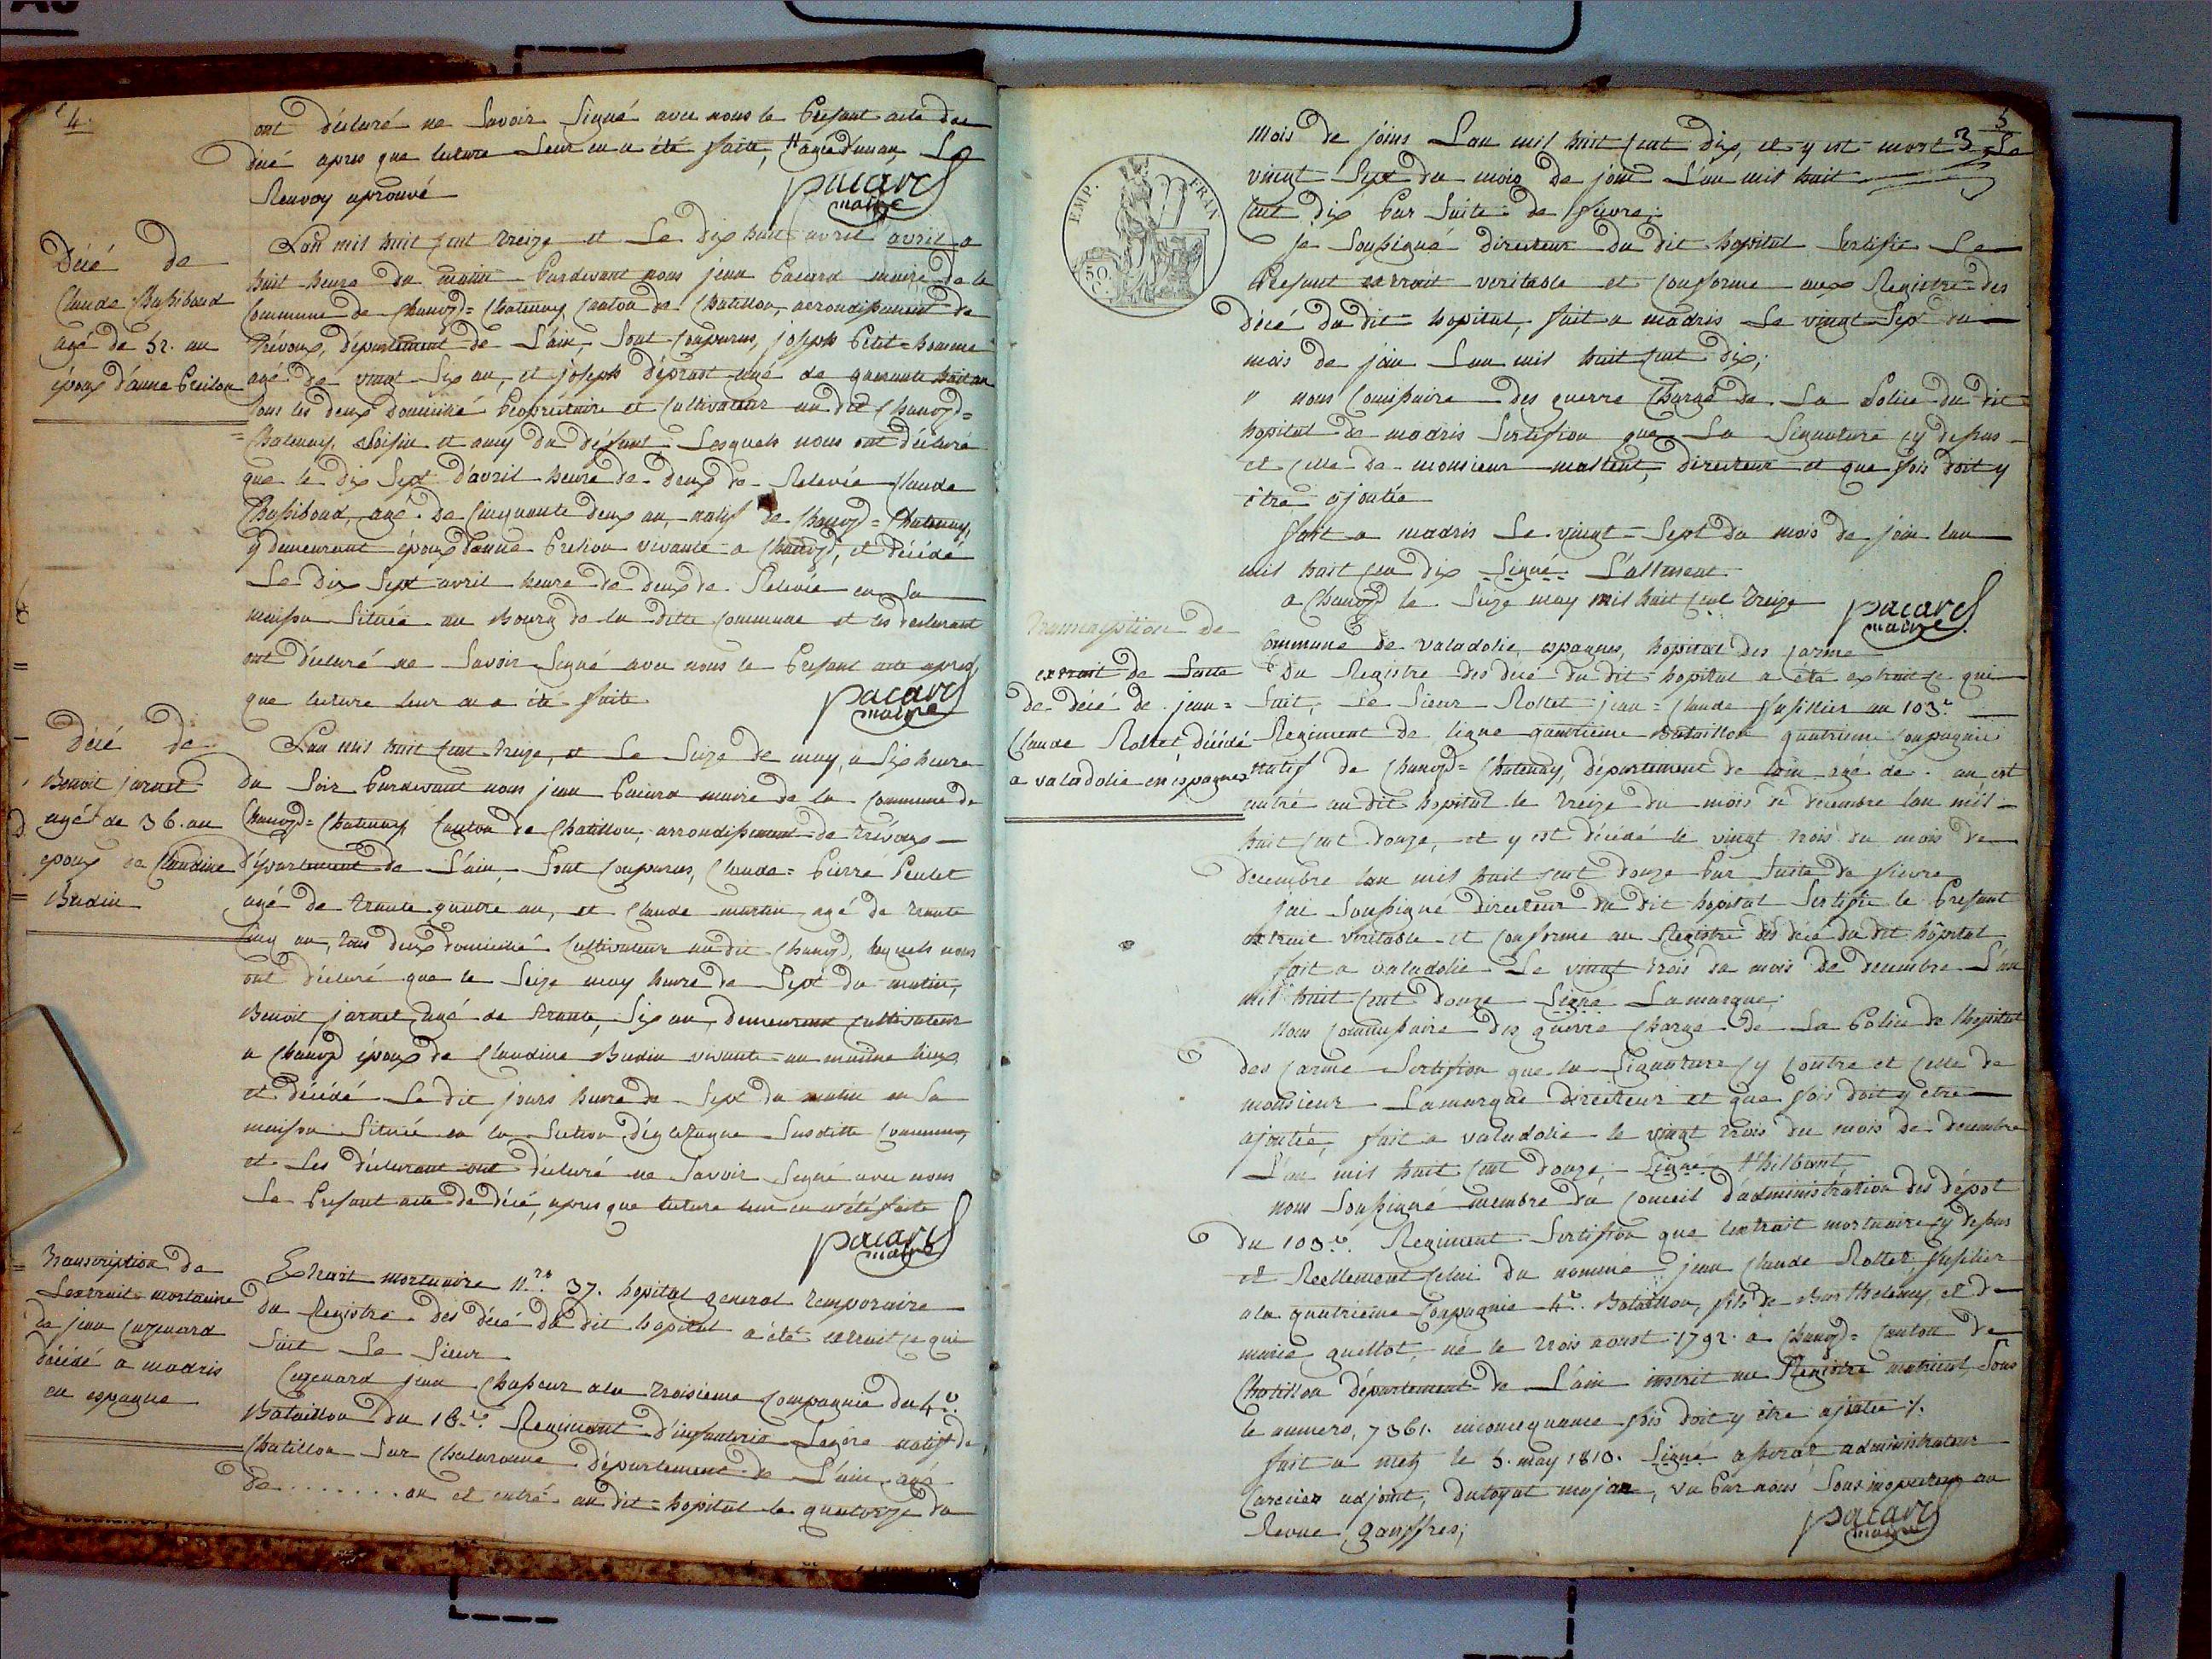 4.
ont déclaré ne Savoir Signé avec nous le Present acte de
décé apres que lecture Leur en a été faitte, "agé d'un an, Le
Renvoy aprouvé
pacard
maire
Décé de
Claude Chassiboud
agé de 52. an
époux d'anne Preilon
L'an mil huit cent treize et Le dix huit avril avril a
huit heure du matin Pardevant nous jean Pacard maire de la
Commune de Chanoz=Chatenay Canton de Chatillon, arrondissement de
Trévoux, département de L'ain, Sont Comparus, joseph Petit=homme
agé de vingt Six an, et joseph déprast agé de quarante huit an
tous les deux Domicilié Propriétaire et Cultivateur au dit Chanoz=
=Chatenay, Voisin et amy du défunt, Lesquels nous ont déclaré
que le dix Sept d'avril heure de deux de Relevée Claude
Chassiboud, agé de Cinquante deux an, natif de Chanoz=Chatenay,
y demeurant époux d'anne Prelion vivante a Chanoz, et décédé
Le dix Sept avril heure de deux de Relevée en Sa
maison Située au Bourg de la ditte Commune et les declarant
ont déclaré ne Savoir Signé avec nous le Present acte apres
que lecture leur en a été faite
pacard
maire
Décé de
Benoit jarnet
agé de 36. an
epoux de Claudine
Budin
L'an mil huit Cent treize, et Le Seize de may, a Six heure
du Soir Pardevant nous jean Pacard maire de la Commune de
Chanoz=Chatenay Canton de Chatillon, arrondissement de Trévoux
département de L'ain, Sont Comparus, Claude=Pierre Peulet
agé de trante quatre an, et Claude martin agé de trante
Cinq an, tous deux domicilié Cultivateur au dit Chanoz, lequels nous
ont déclaré que le Seize may heure de Sept du matin,
Benoit jarnet agé de trante, Six an, demeurant Cultivateur
a Chanoz époux de Claudine Budin vivante au mesme lieux,
et décédé Le dit jours heure de Sept du matin en Sa
maison Située en la Section Susditte Commune,
et Les déclarant ont déclaré ne Savoir Signé avec nous
Le Present acte de décé, apres que lecture leur en a été faite
pacard
maire
Transcription de
L'extrait mortuaire
de jean Cugenard
décédé a madris
en espagne
Extrait mortuaire N.ro 37. hopital general temporaire
du Registre des décé du dit hopital a été extrait ce qui
Suit Le Sieur
Cugenard jean Chasseur a la troisieme Compagnie du 4.e
Bataillon du 16.e Regiment d'infanterie Legère natif de
Chatillon Sur Chalaronne département de L'ain agé
de ........ an et entré au dit=hopital le quatorze du
5
3
EMP. FRAN
50
mois de joins L'an mil huit Cent dix, et y est mort Le
vingt Sept du mois de join L'an mil huit
Cent dix Par Suite de fievre;
je Soussigné directeur du dit hopital Certifie Le
Present extrait veritable et Conforme aux Registre des
décé du dit hopital, fait a madris Le vingt Sept du
mois de join L'an mil huit Cent dix;
" nous Comissaire des guerre Chargé de La Police du dit
hopital de madris Sertifion que La Signature cy dessus
et Celle de monsieur maltent, directeur et que fois doit y
être ajoutée
fait a madris Le vingt=Sept du mois de join lan
mil huit Cen dix Signé L'altement
a Chanoz le Seize may mil huit Cent treize
pacard
maire
Transcription de
extrait de Lacte
de décé de jean=
Claude Rollet décédé
a valadolie en espagnes
Commune de valadolie, espagnes, hopital des Carme
Du Registre des décé du dit=hopital a été extrait ce qui
Suit, Le Sieur Rollet jean=Claude fusillier au 103.e
Regiment de ligne quatrieme Bataillon quatrieme Compagnie
natif de Chanoz=Chatenay, département de lain agé de . an est
entré au dit hopital le treize du mois de decembre lan mil
huit Cent douze, et y est décédé le vingt trois du mois de
decembre lan mil huit cent douze Par Suite de fievre
jai Soussigné directeur du dit hopital Sertifie le Present
extrait véritable et Conforme au Registre des décé du dit hôpital
fait a valadolie Le vingt trois du mois de decembre L'an
mil huit Cent douze Signé Lamarque;
Nous Commissaire des guerre Chargé de La Police de lhopital
des Carme Sertifion que la Signature Cy Contre et Celle de
monsieur Lamarque directeur et que fois doit y etre
ajoutée, fait a valadolie le vingt trois du mois de decembre
L'an mil huit Cent douze; Signé
nous Soussigné membre du Conceil d'administration des dépot
du 103.e Regiment Sertifion que lextrait mortuaire cy dessus
et Reellement Celui du nommé jean Claude Rollet, fusilier
a la quatrieme Compagnie 4.e Bataillon, fils de Barthelemy et de
marie quellot, né le trois aoust 1792. a Chanoz=Canton de
Chatillon département de L'ain inscrit au Registre matricul, Sous
le numero, 7361. enconcequance fois doit y être ajoutée /.
fait a metz le 5. may 1813. Signé administrateur
Carcier adjoint, Dutoyat major, vu Par nous Sous inspecteur au
Revue gauffres;
pacard
maire